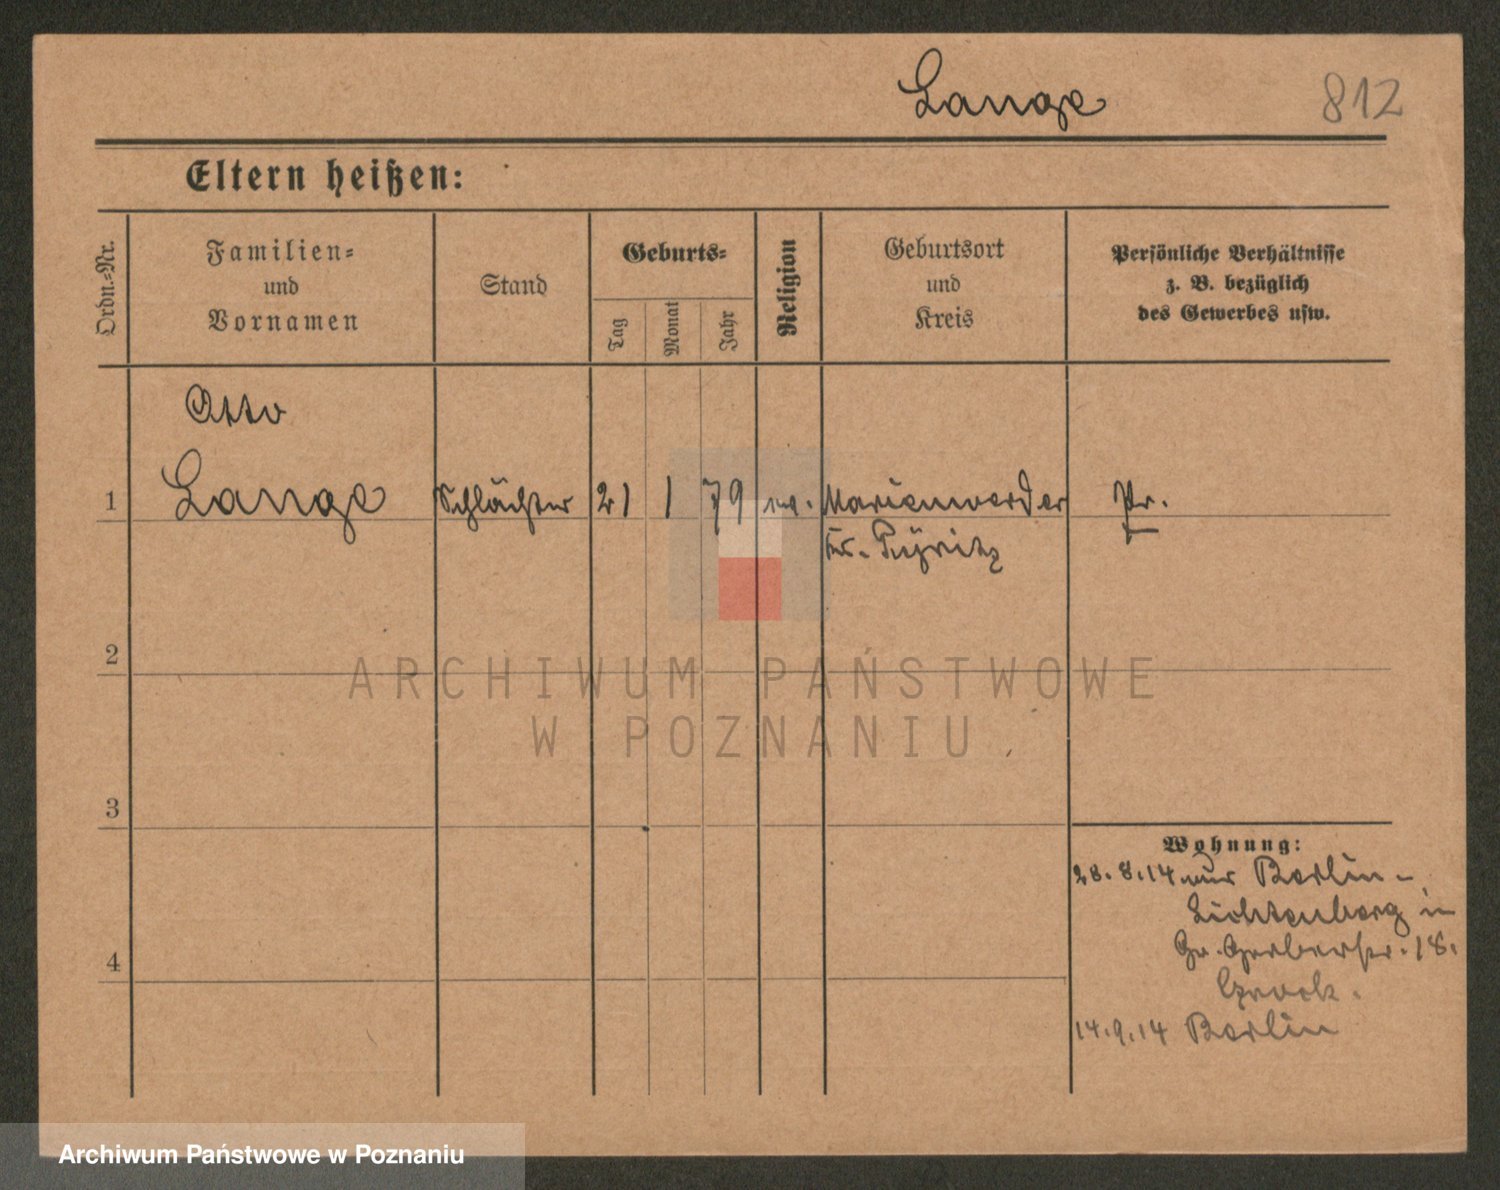 Lange 812
Eltern heißen:
Ordn.-Nr.
Familien-
und
Vornamen
Stand
Geburts-
Tag
Monat
Jahr
Religion
Geburtsort
und
Kreis
Persönliche Verhältnisse
z. B. bezüglich
des Gewerbes usw.
Otto
1 Lange Schlächter 21 1 79 ev. Marienwerder Pr.
Kr. Pyritz
2
ARCHIWUM PAŃSTWOWE
W POZNANIU
3
Wohnung:
28.8.14 aus Berlin-
Lichtenberg in
Gr. Gerberstr. 18.
4
14.9.14 Berlin
Archiwum Państwowe w Poznaniu